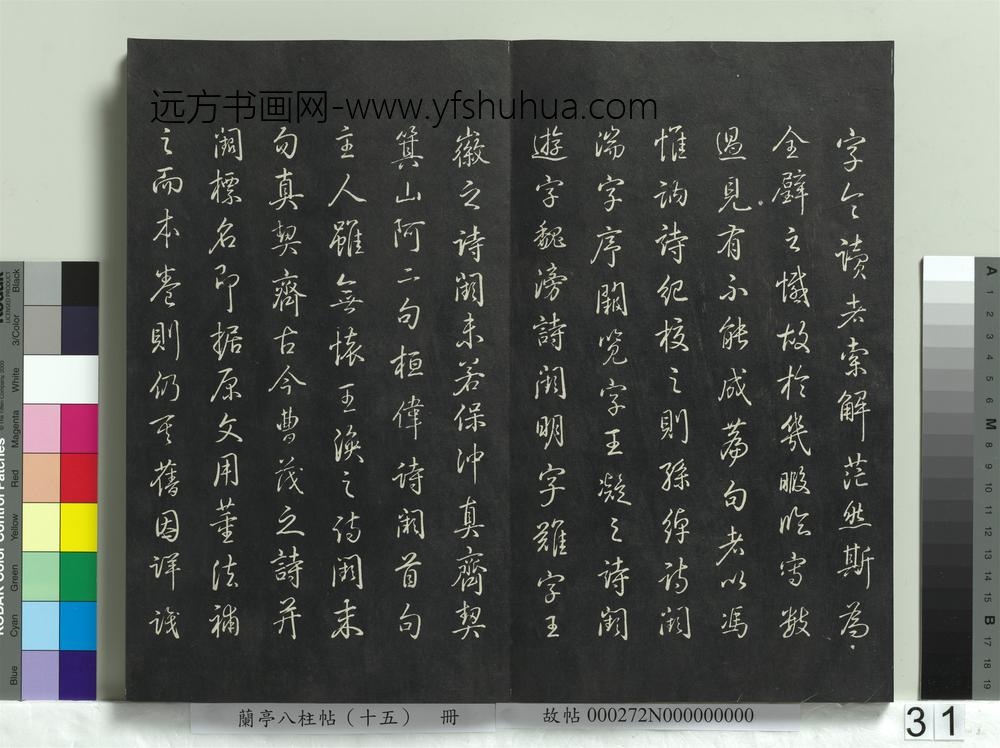 远方书画网-www.yfshuhua.com
字令讀者索解茫然斯為
全璧之憾故於幾暇臨寫數
過見有不能成篇句者以馮
惟訥詩紀校之則孫綽詩闕
湍字序闕覽字王凝之詩闕
遊字魏滂詩闕明字難字王
徽之詩闕未若保沖真齊契
箕山阿二句桓偉詩闕首句
主人雖無懷王渙之詩闕末
句真契齊古今曹茂之詩并
闕標名即據原文用董法補
之而本卷則仍其舊因詳識
蘭亭八柱帖（十五） 冊
故帖 000272N000000000
31
KODAK Color Control Patches
Blue
Cyan
Green
Yellow
Red
Magenta
White
3/Color
Black
A
1
2
3
4
5
6
M
8
9
10
11
12
13
14
15
B
17
18
19